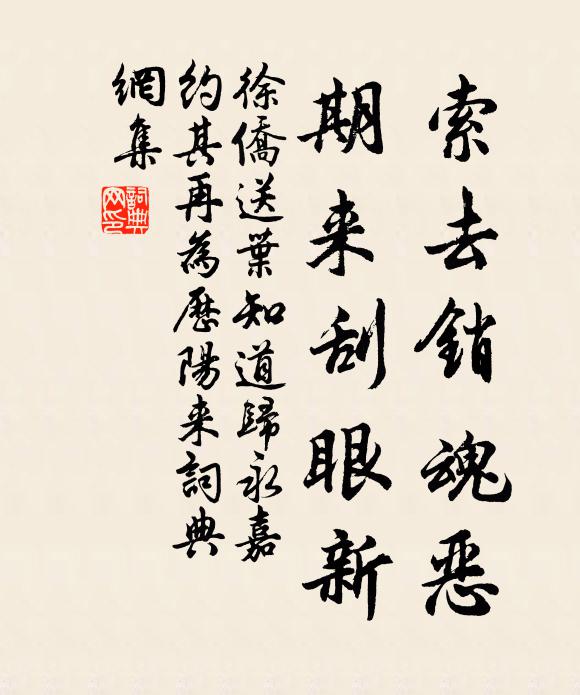 索去銷魂恶
期来刮眼新
徐僑送葉知道歸永嘉
約其再為歷陽来詞典
網集
詞典网印